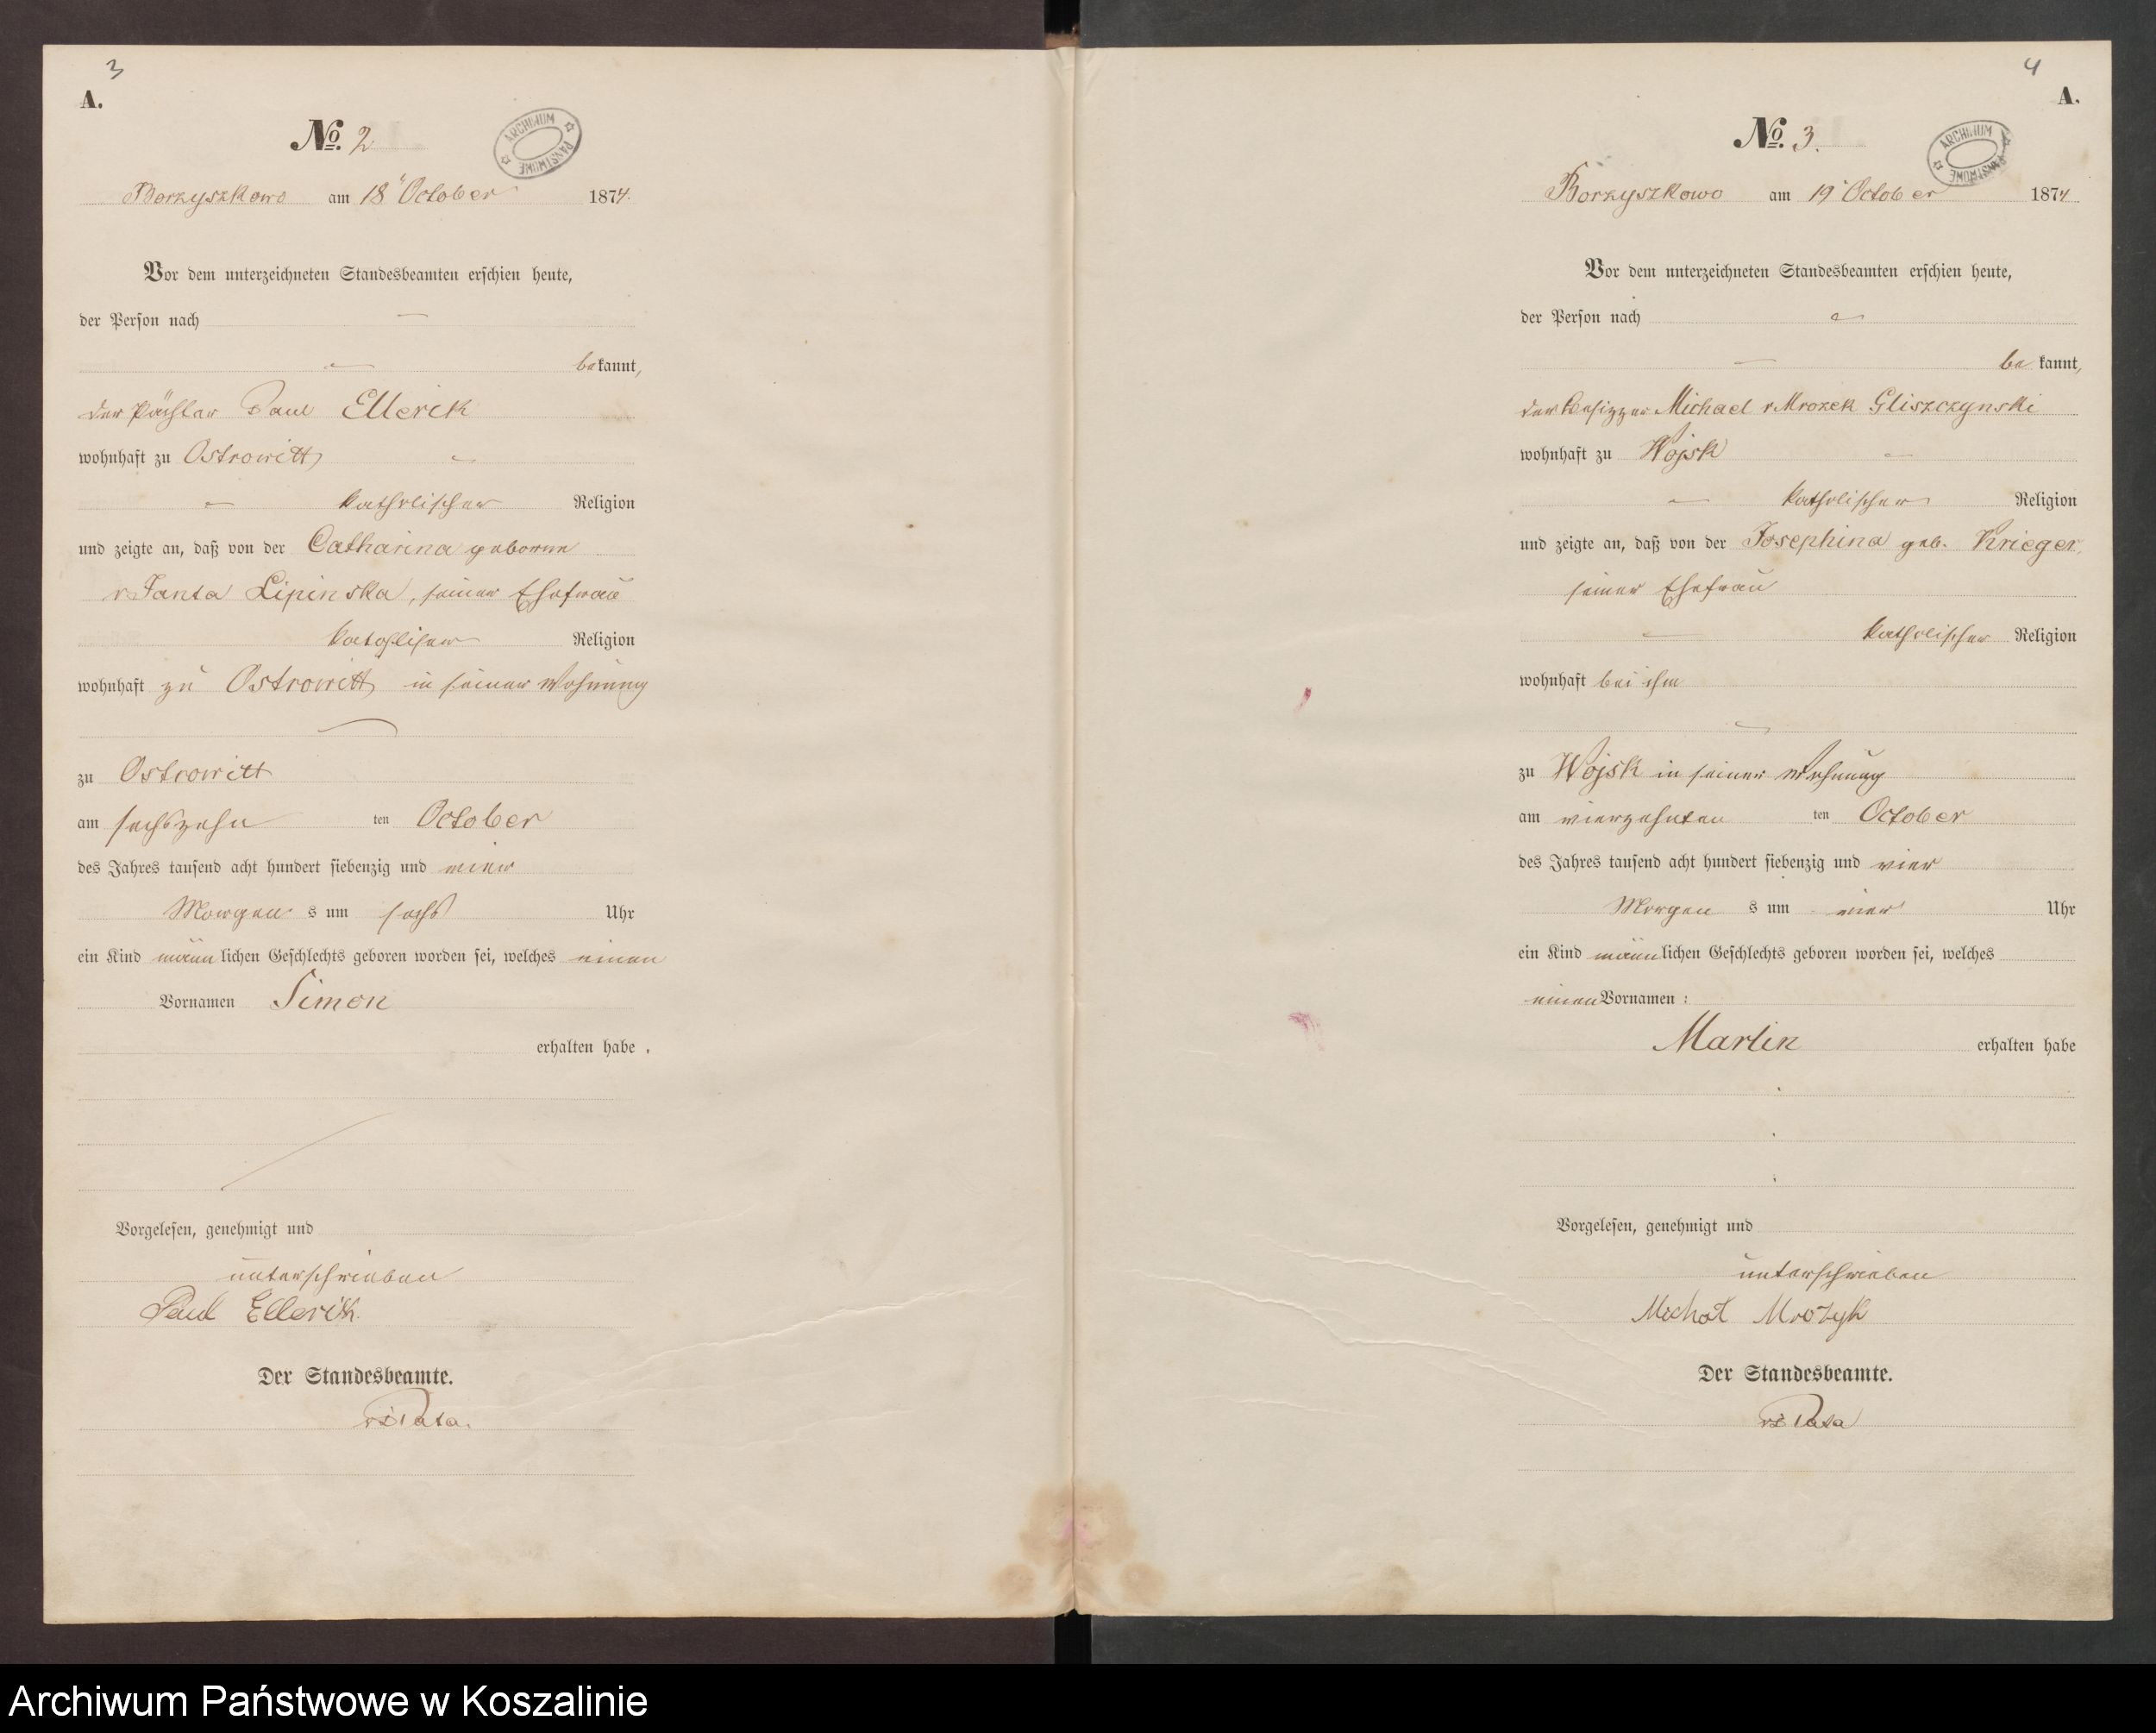 3
A.
No. 2
ARCHIWUM PAŃSTWOWE
Borzyszkowo am 18t October 1874.
Vor dem unterzeichneten Standesbeamten erschien heute,
der Person nach
bekannt,
der Pächter Paul Ellerik
wohnhaft zu Ostrowitt
katholischer Religion
und zeigte an, daß von der Catharina geborne
v Janta Lipinska, seiner Ehefrau
katholischer Religion
wohnhaft zu Ostrowitt in seiner Wohnung
zu Ostrowitt
am sechszehn ten October
des Jahres tausend acht hundert siebenzig und vier
Morgen s um sechs Uhr
ein Kind männlichen Geschlechts geboren worden sei, welches einen
Vornamen Simon
erhalten habe.
Vorgelesen, genehmigt und
unterschrieben
Paul Ellerik.
Der Standesbeamte.
4
A.
No. 3.
ARCHIWUM PAŃSTWOWE
Borzyszkowo am 19t October 1874
Vor dem unterzeichneten Standesbeamten erschien heute,
der Person nach
bekannt,
der Besitzer Michael v Mrozek Gliszczynski
wohnhaft zu Wojsk
katholischer Religion
und zeigte an, daß von der Josephina geb. Krieger,
seiner Ehefrau
katholischer Religion
wohnhaft bei ihm
zu Wojsk in seiner Wohnung
am vierzehnten ten October
des Jahres tausend acht hundert siebenzig und vier
Morgen s um vier Uhr
ein Kind männlichen Geschlechts geboren worden sei, welches
einen Vornamen:
Martin erhalten habe
Vorgelesen, genehmigt und
unterschrieben
Michał Mrozyk
Der Standesbeamte.
Archiwum Państwowe w Koszalinie